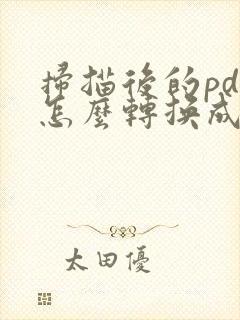 掃描後的pd
怎麼轉換成
太田優